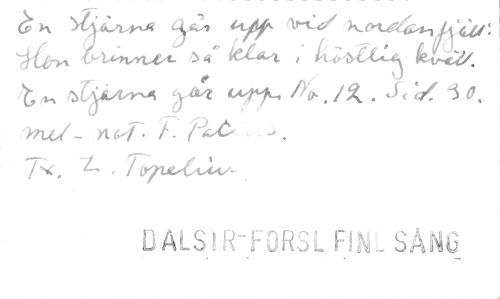 En stjärna går upp vid nordanfjäll:
Hon brinner så klar i höstlig kväll.
En stjärna går upp. No. 12. Sid. 30.
mel-not. F. Pacius.
Tx. Z. Topelius.
DALSTR-FORSL FINL SÅNG